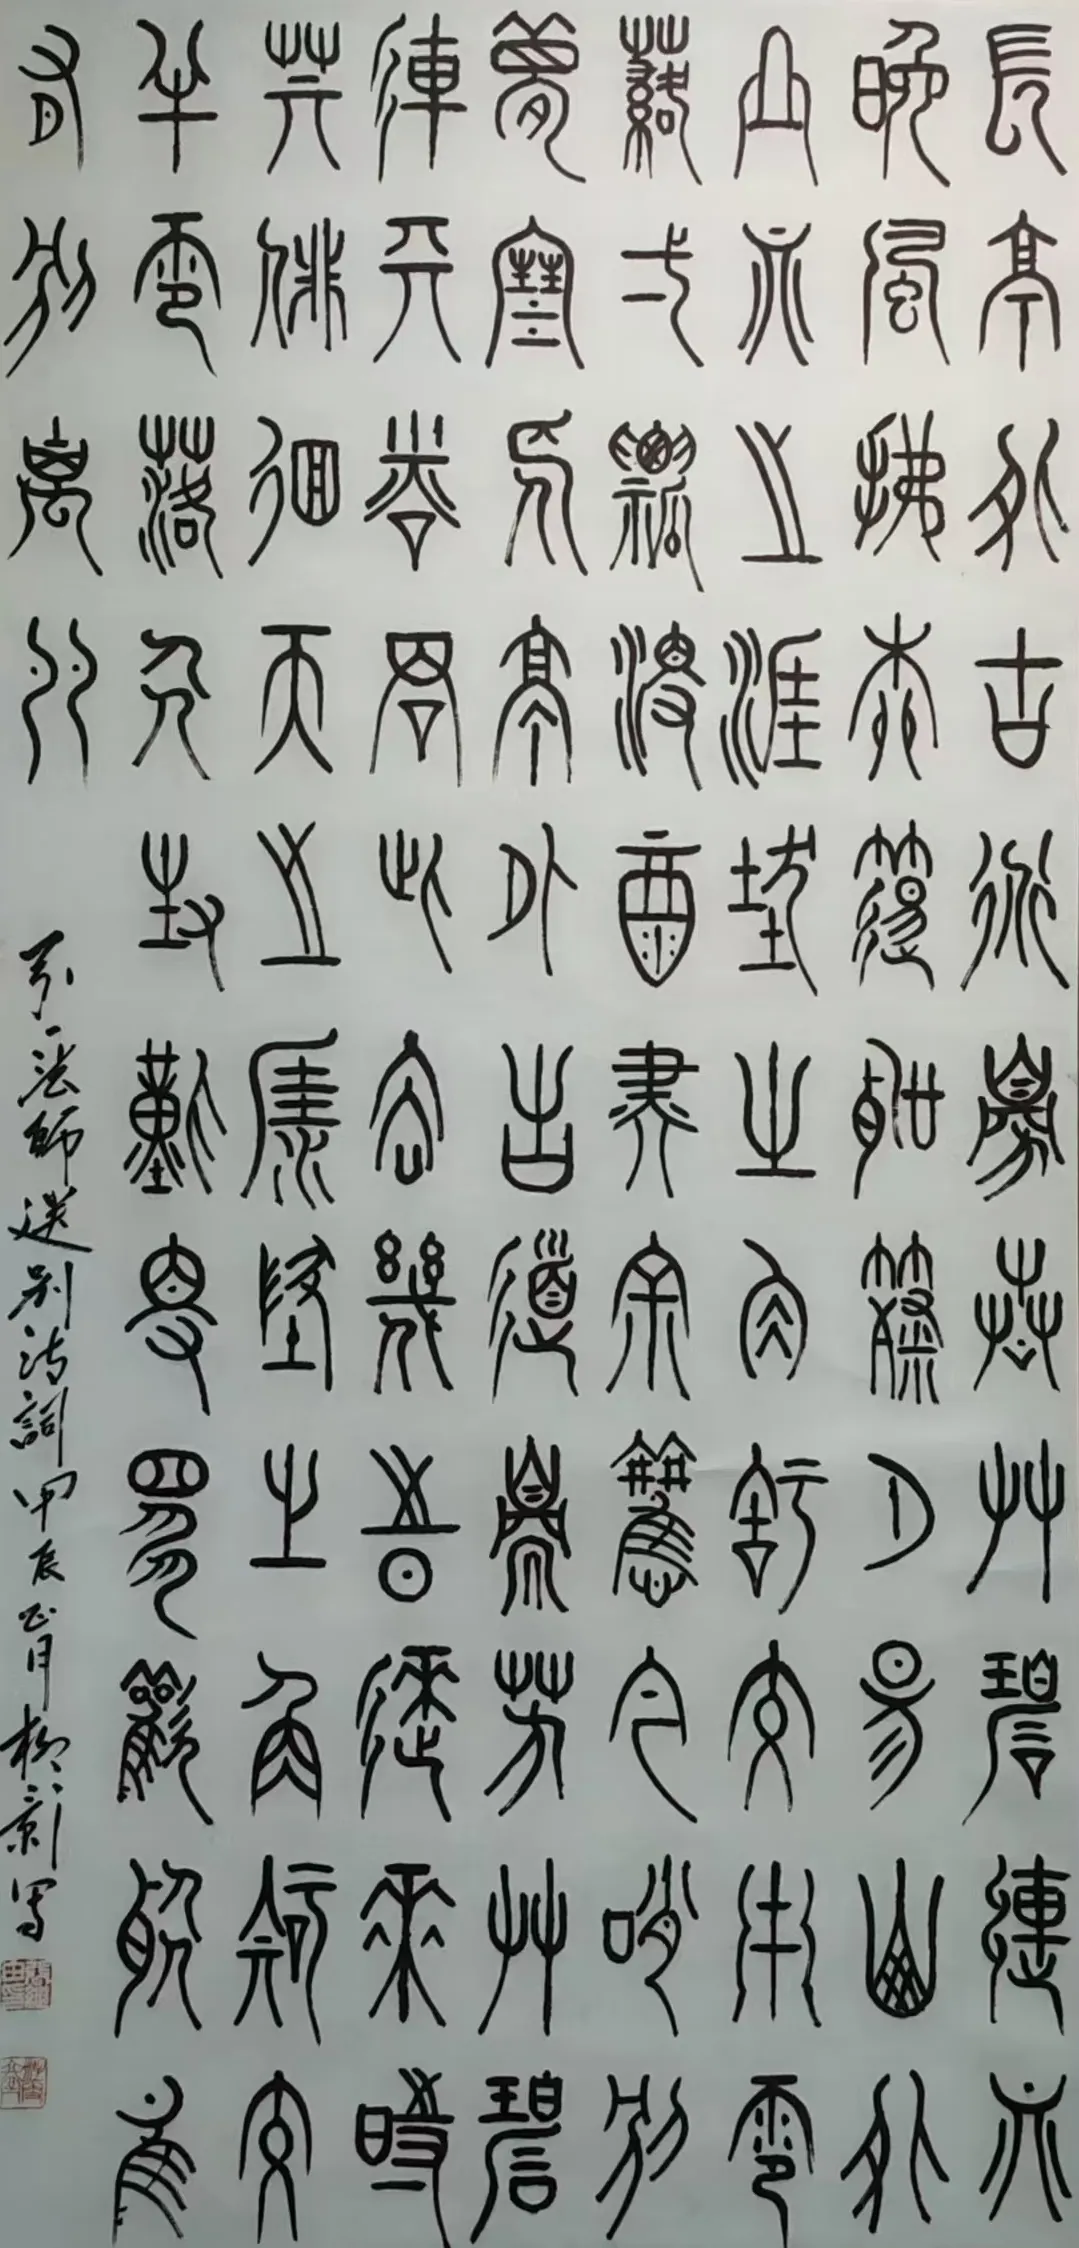 長亭外古道邊芳草碧連天
晚風拂柳笛聲殘夕陽山外
山天之涯地之角知交半零
落一瓢濁酒盡餘歡今宵別
夢寒長亭外古道邊芳草碧
連天問君此去幾時還來時
莫徘徊天之涯地之角知交
半零落人生難得是歡聚惟
有別離多
弘一法師送別诗詞甲辰正月柳新写